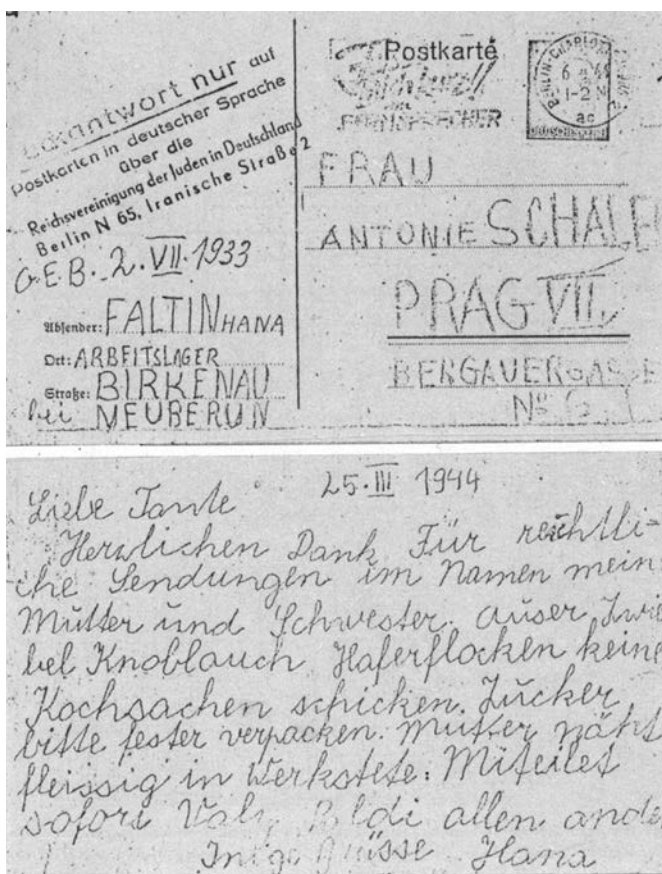 Rückantwort nur auf
Postkarten in deutscher Sprache
über die
Reichsvereinigung der Juden in Deutschland
Berlin N 65, Iranische Straße 2
GEB. 2. VII. 1933
Absender: FALTIN HANA
Ort: ARBEITSLAGER
Straße: BIRKENAU
bei NEUBERUN
Postkarte
FERNSPRECHER
BERLIN-CHARLOTTENBURG
1-2 N
ac
FRAU
ANTONIE SCHALE
PRAG VII.
BERGAUERGASSE
No 6
25. III 1944
Liebe Tante
Herzlichen Dank Für reichtli-
che Sendungen im Namen mein
Mutter und Schwester. auser Zwie
bel Knoblauch Haferflocken keine
Kochsachen schicken. Zucker
bitte fester verpacken. Mutter näht
fleissig in Werkstete. Miteilet
sofort allen ande
Inige Grüsse Hana